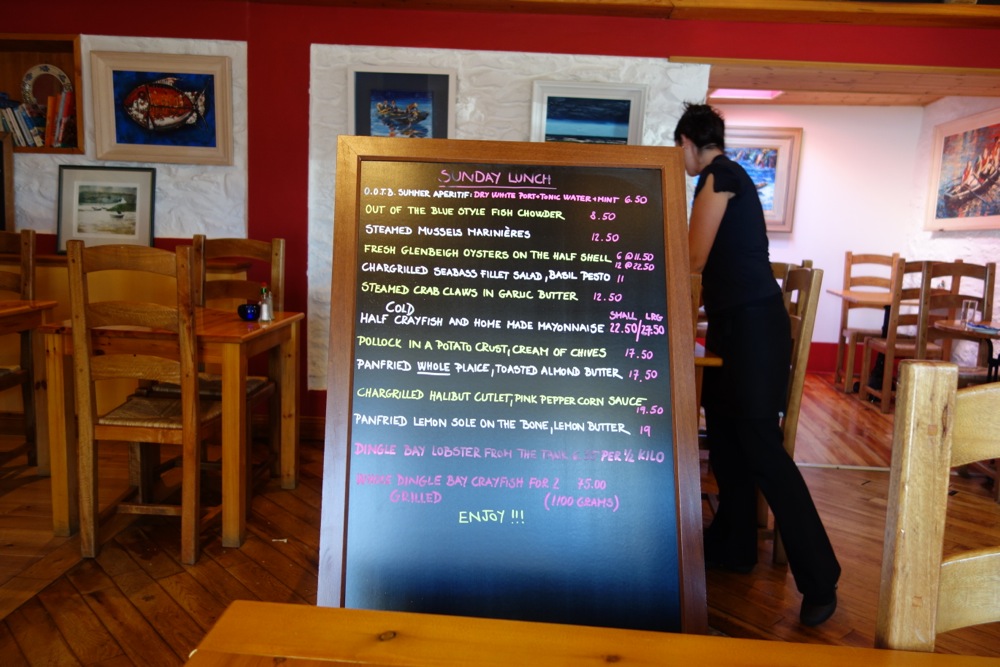 SUNDAY LUNCH
O.O.T.B. SUMMER APERITIF: DRY WHITE PORT + TONIC WATER + MINT 6.50
OUT OF THE BLUE STYLE FISH CHOWDER 8.50
STEAMED MUSSELS MARINIÈRES 12.50
FRESH GLENBEIGH OYSTERS ON THE HALF SHELL 6 @ 11.50
12 @ 22.50
CHARGRILLED SEABASS FILLET SALAD, BASIL PESTO 11
STEAMED CRAB CLAWS IN GARLIC BUTTER 12.50
COLD SMALL LRG
HALF CRAYFISH AND HOME MADE MAYONNAISE 22.50/27.50
POLLOCK IN A POTATO CRUST, CREAM OF CHIVES 17.50
PANFRIED WHOLE PLAICE, TOASTED ALMOND BUTTER 17.50
CHARGRILLED HALIBUT CUTLET, PINK PEPPERCORN SAUCE
19.50
PANFRIED LEMON SOLE ON THE BONE, LEMON BUTTER 19
DINGLE BAY LOBSTER FROM THE TANK PER ½ KILO
WHOLE DINGLE BAY CRAYFISH FOR 2 75.00
GRILLED (1100 GRAMS)
ENJOY !!!